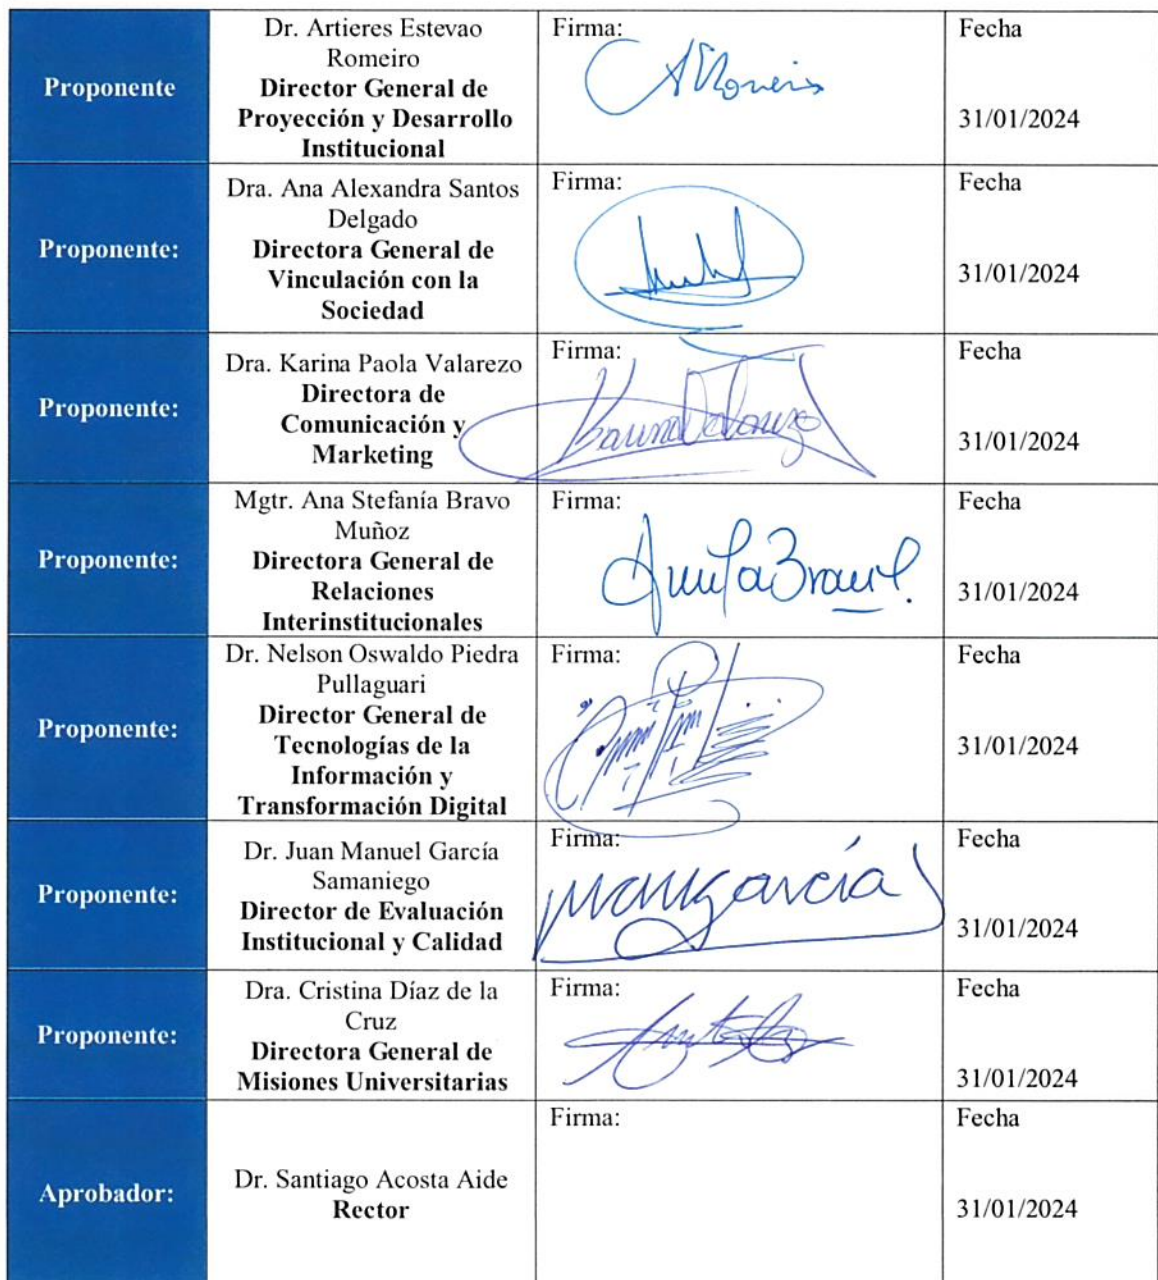 Proponente
Dr. Artieres Estevao
Romeiro
Director General de
Proyección y Desarrollo
Institucional
Firma:
Fecha
31/01/2024
Proponente:
Dra. Ana Alexandra Santos
Delgado
Directora General de
Vinculación con la
Sociedad
Firma:
Fecha
31/01/2024
Proponente:
Dra. Karina Paola Valarezo
Directora de
Comunicación y
Marketing
Firma:
Fecha
31/01/2024
Proponente:
Mgtr. Ana Stefanía Bravo
Muñoz
Directora General de
Relaciones
Interinstitucionales
Firma:
Fecha
31/01/2024
Proponente:
Dr. Nelson Oswaldo Piedra
Pullaguari
Director General de
Tecnologías de la
Información y
Transformación Digital
Firma:
Fecha
31/01/2024
Proponente:
Dr. Juan Manuel García
Samaniego
Director de Evaluación
Institucional y Calidad
Firma:
Fecha
31/01/2024
Proponente:
Dra. Cristina Díaz de la
Cruz
Directora General de
Misiones Universitarias
Firma:
Fecha
31/01/2024
Aprobador:
Dr. Santiago Acosta Aide
Rector
Firma:
Fecha
31/01/2024